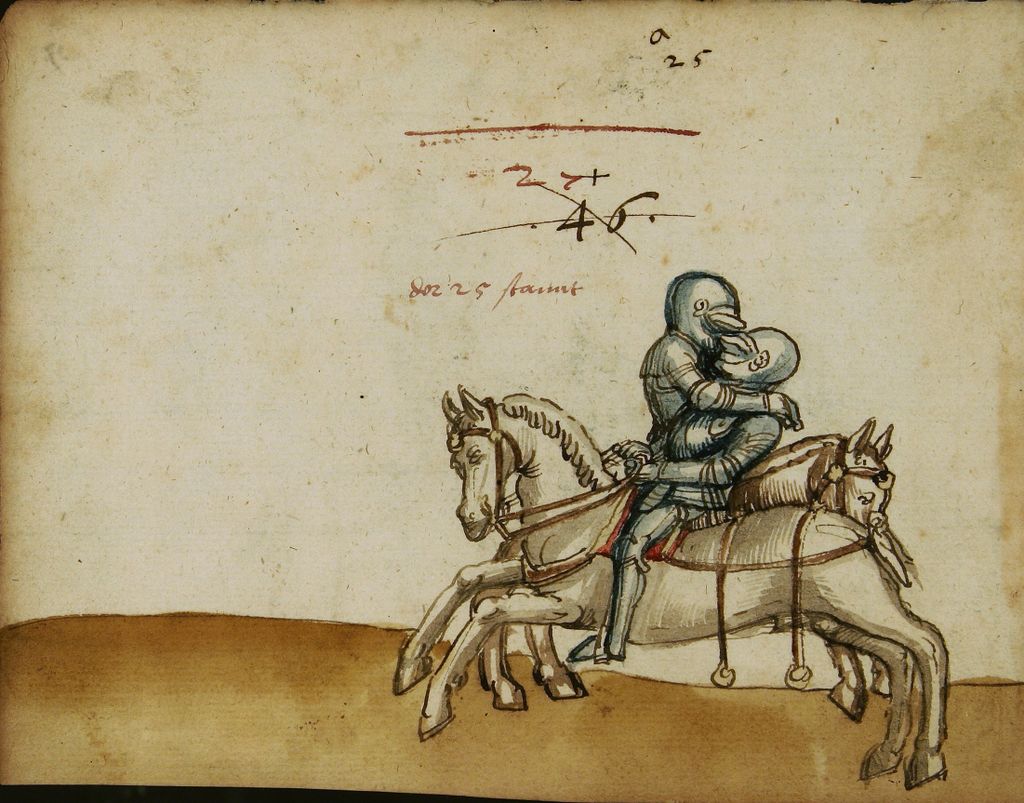 a
25
27
46
der 25 stannt